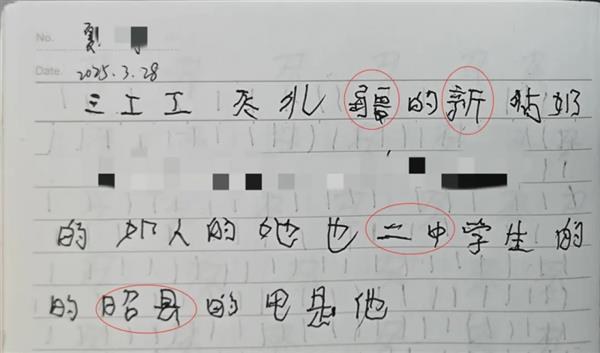 No.
Date. 2025.3.28
三 工 工 疆 的 新 奶
的 如 人 的 她 也 二 中 学 生 的
的 昭 县 的 电 是 他